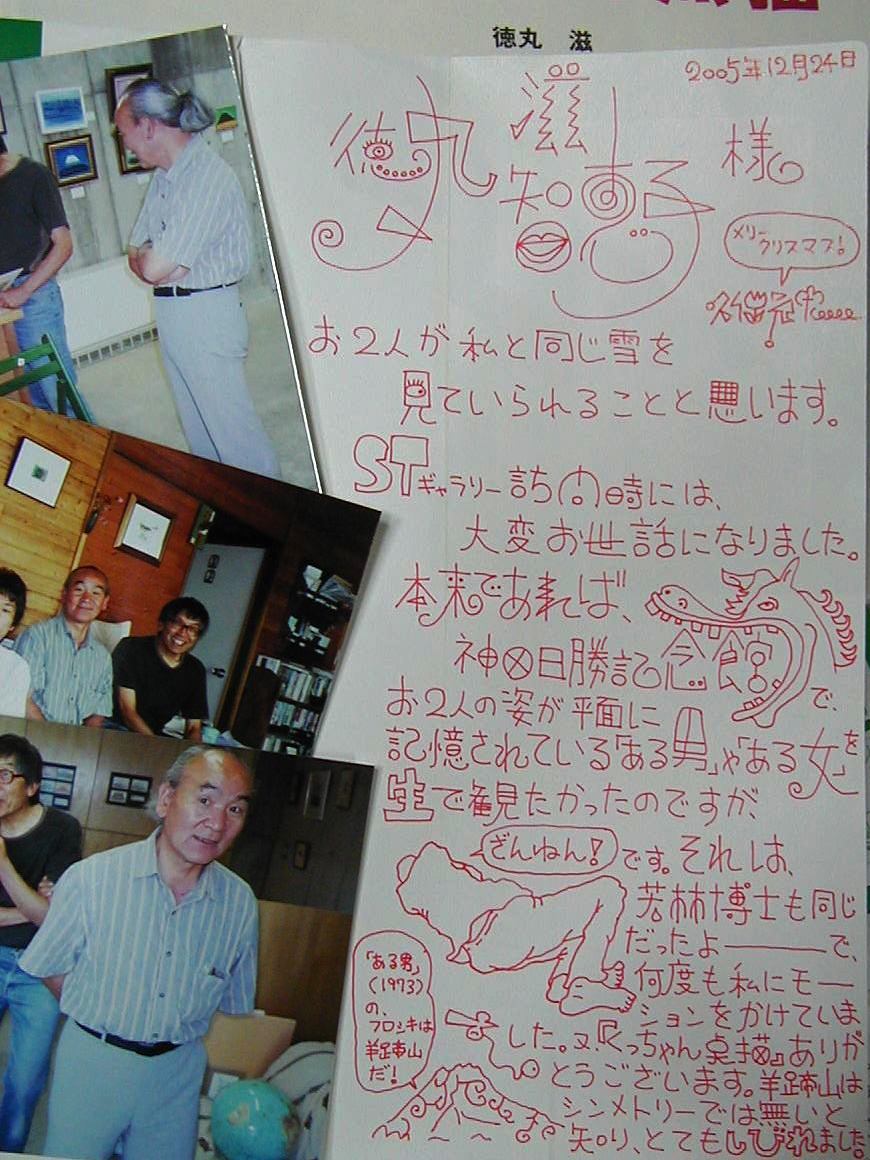 徳丸 滋
2005年12月24日
徳丸 滋
知子 様
メリー
クリスマス!
お2人が私と同じ雪を
見ていられることと思います。
STギャラリー訪問時には、
大変お世話になりました。
本来であれば、
神田日勝記念館で、
お2人の姿が平面に
記憶されている「ある男」や「ある女」を
生で観たかったのですが、
ざんねん!です。それは、
若林博士も同じ
だったよ―――で、
何度も私にモー
ションをかけていま
した。又、『くっちゃん素描』ありが
とうございます。羊蹄山は
シンメトリーでは無いと
知り、とてもしびれました。
「ある男」
(1973)
の、
フロシキは
羊蹄山
だ!